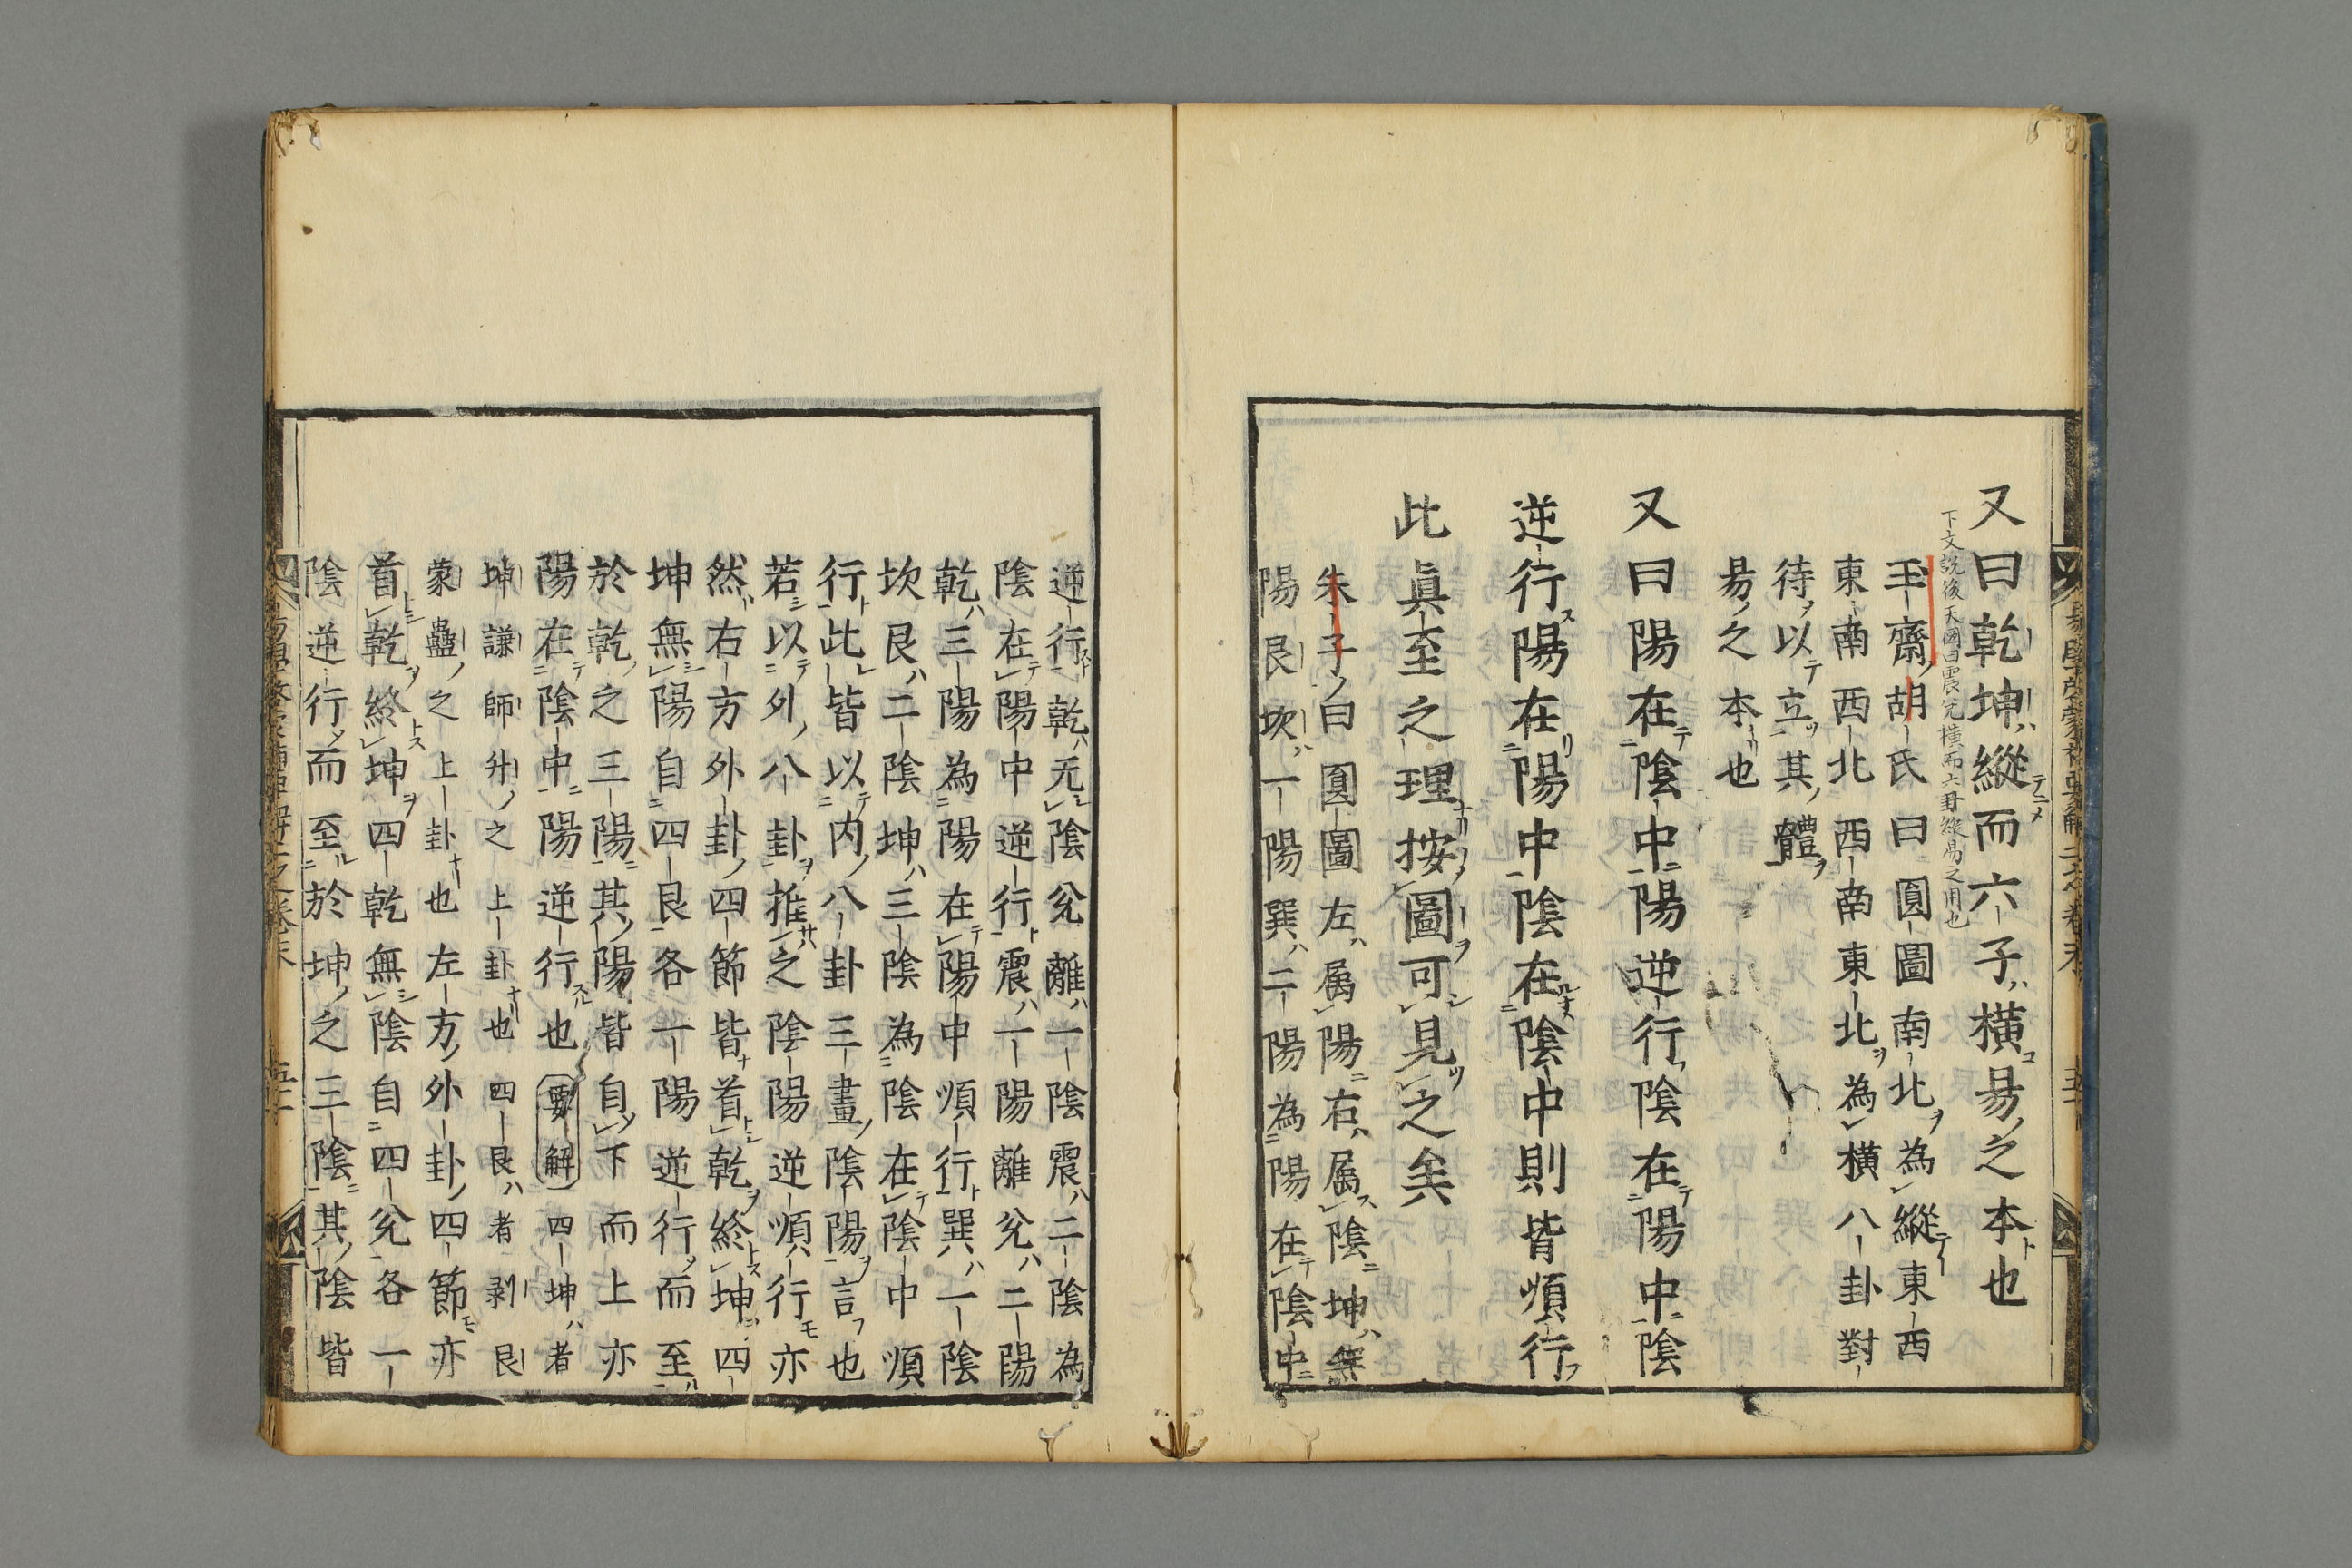 又曰乾坤縱而六子橫易之本也
下文説後天圖曰震兌横而六卦縱易之用也
玉齋胡氏曰圓圖南北為縱東西
東南西北西南東北為橫八卦對
待以立其體
易之本也
又曰陽在陰中陽逆行陰在陽中陰
逆行陽在陽中陰在陰中則皆順行
此眞至之理按圖可見之矣
朱子曰圓圖左属陽右属陰坤無
陽艮坎一陽巽二陽為陽在陰中
逆行乾无陰兌離一陰震二陰為
陰在陽中逆行震一陽離兌二陽
乾三陽為陽在陽中順行巽一陰
坎艮二陰坤三陰為陰在陰中順
行此皆以内八卦三畫陰陽言也
若以外八卦推之陰陽逆順行亦
然右方外卦四節皆首乾終坤四
坤無陽自四艮各一陽逆行而至
於乾之三陽其陽皆自下而上亦
陽在陰中陽逆行也 要解 四坤者
坤謙師升之上卦也四艮者剥艮
蒙蠱之上卦也左方外卦四節亦
首乾終坤四乾無陰自四兌各一
陰逆行而至於坤之三陰其陰皆